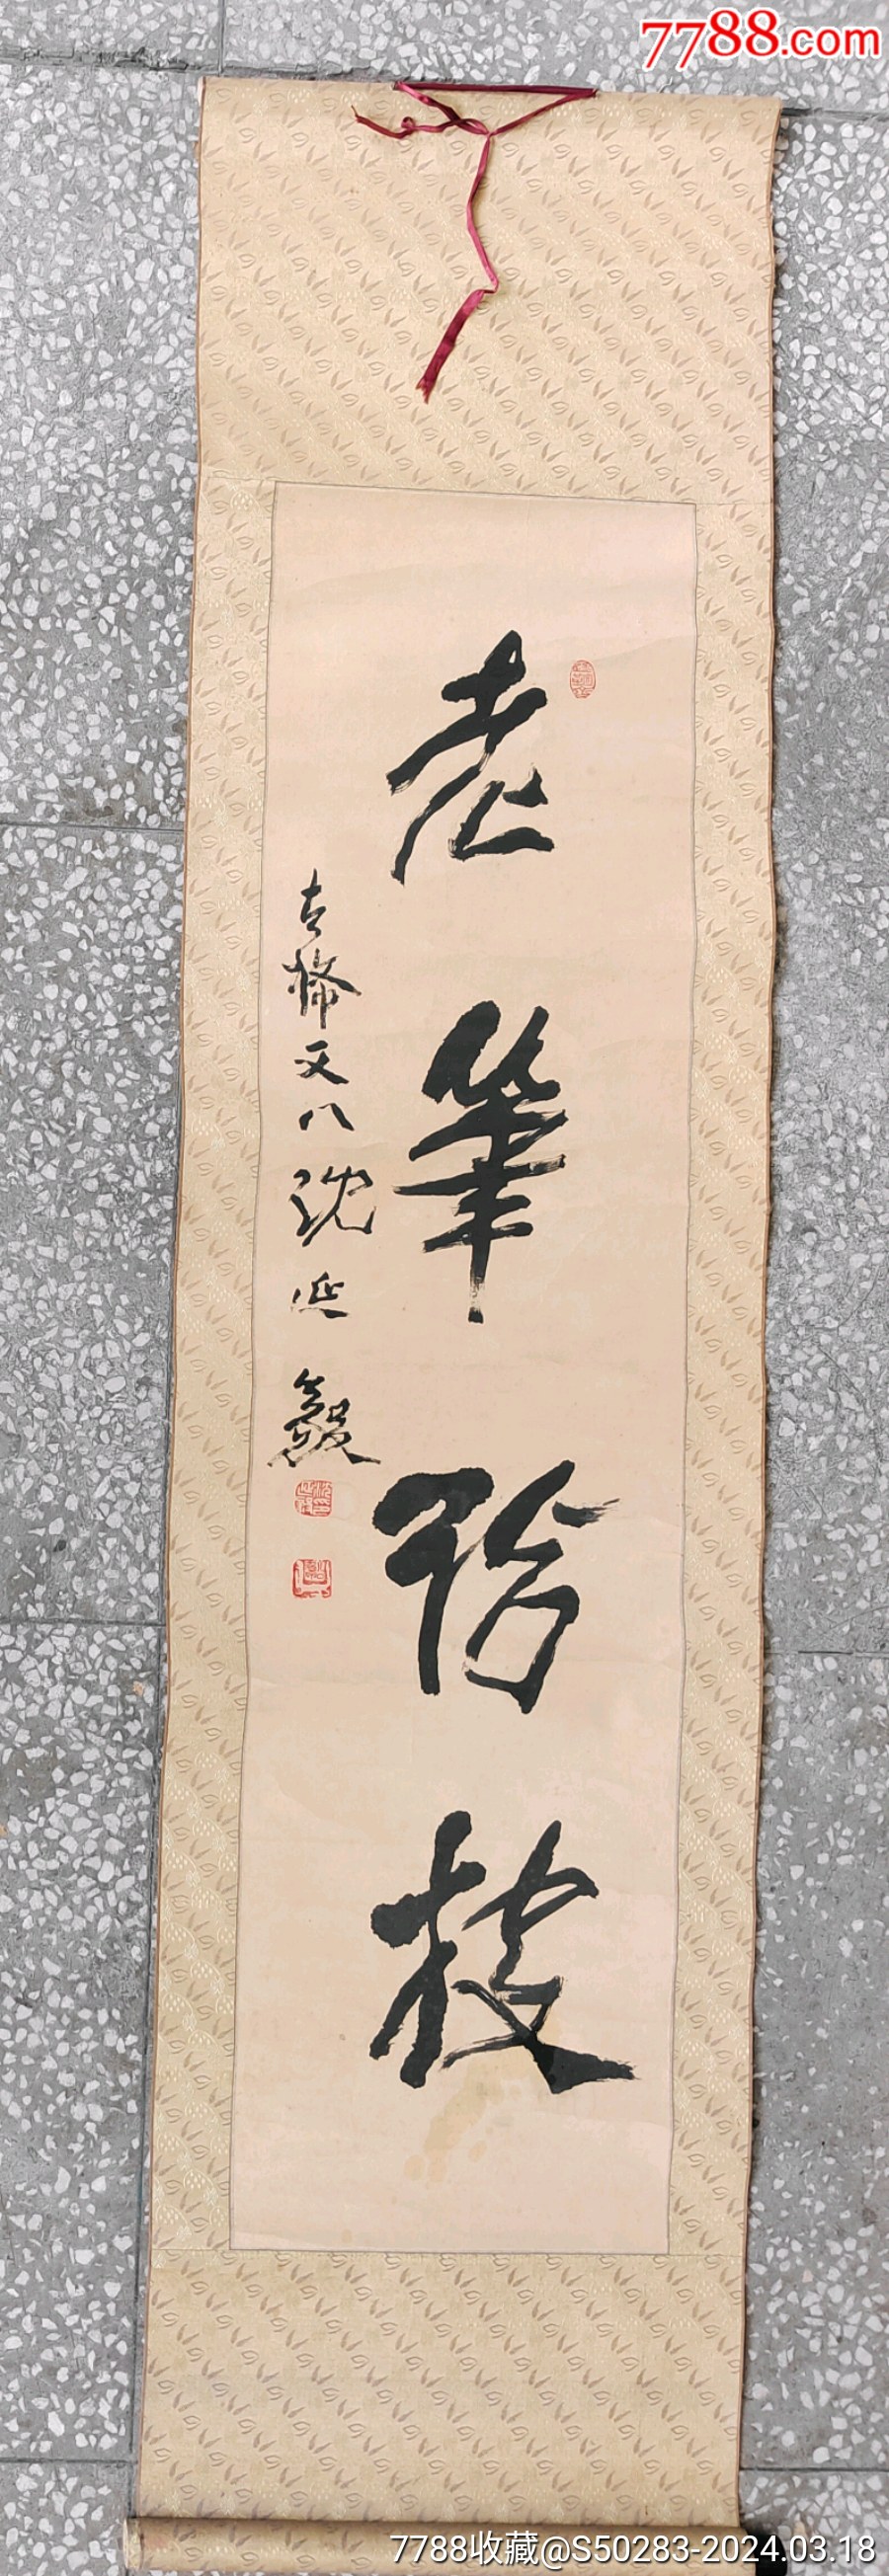 7788.com
老筆紛披
古稀又八沈延毅
7788收藏@S50283-2024.03.18